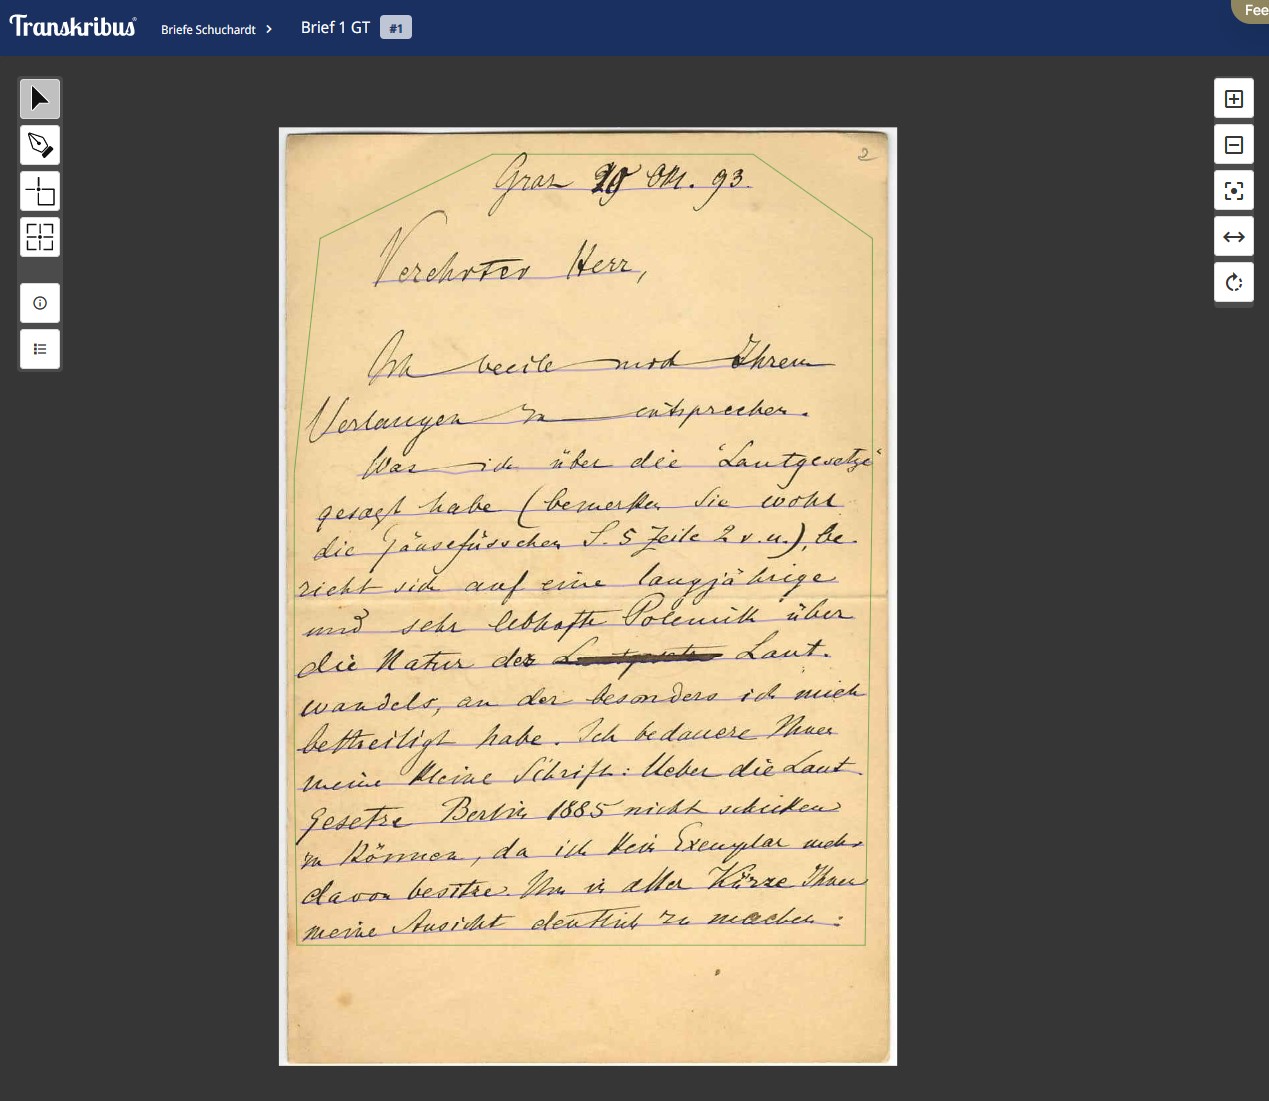 Transkribus
Briefe Schuchardt > Brief 1 GT #1
Fee
2
Graz Okt. 93.
Verehrter Herr,
Ich beeile mich Ihrem
Verlangen zu entsprechen.
Was ich über die "Lautgesetze"
gesagt habe (bemerken Sie wohl
die Gänsefüsschen S. 5 Zeile 2 v. u.), be-
zieht sich auf eine langjährige
und sehr lebhafte Polemik über
die Natur des Laut-
wandels, an der besonders ich mich
betheiligt habe. Ich bedauere Ihnen
meine kleine Schrift: Ueber die Laut-
gesetze Berlin 1885 nicht schicken
zu können, da ich kein Exemplar mehr
davon besitze. Um in aller Kürze Ihnen
meine Ansicht deutlich zu machen: